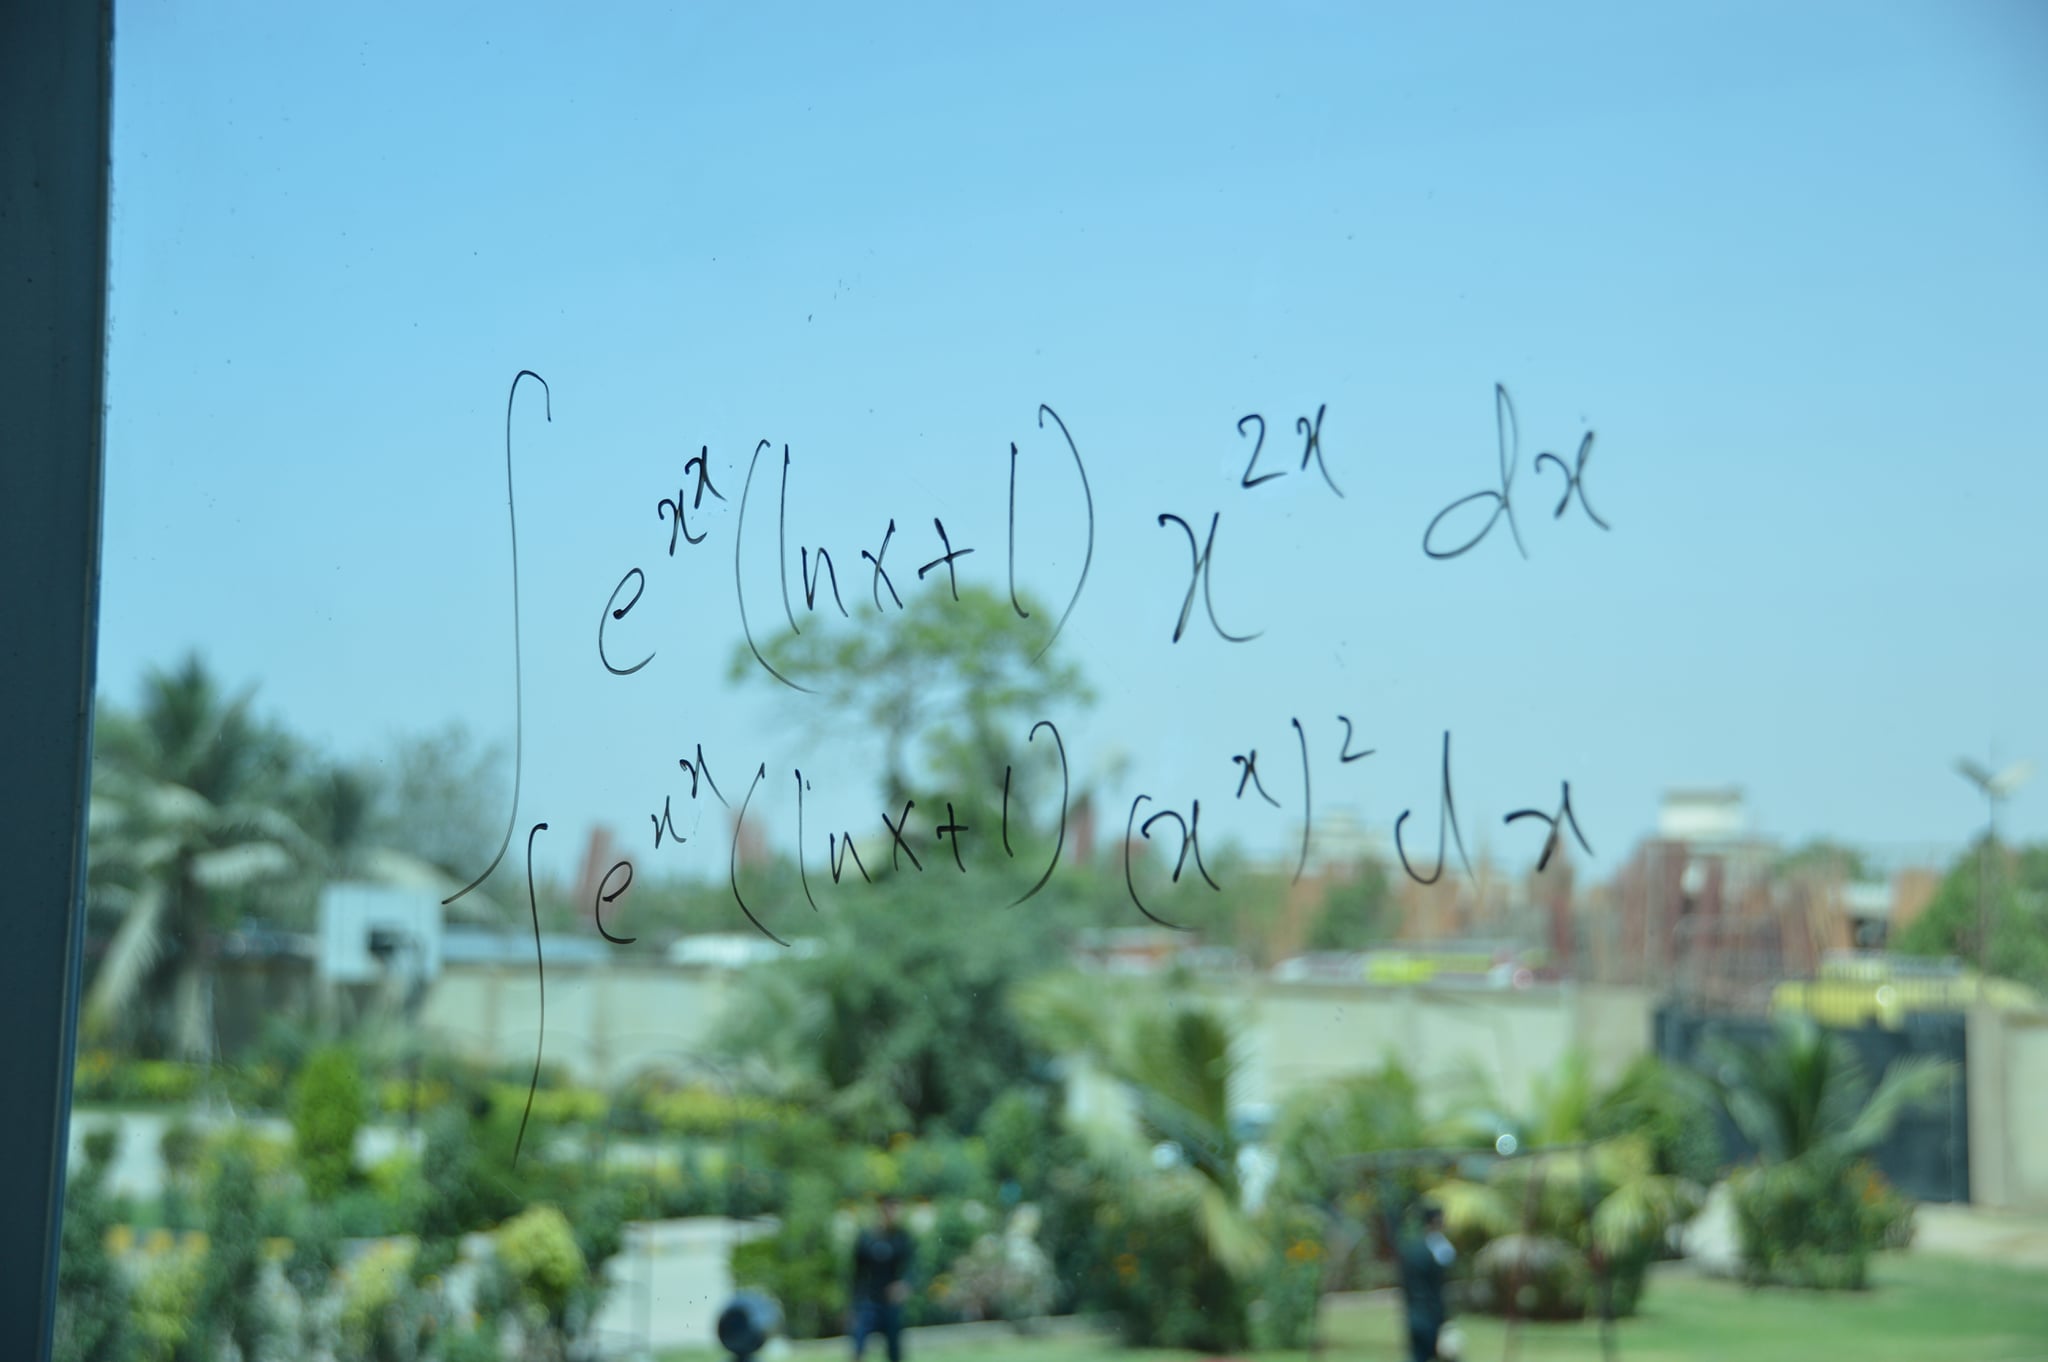 ∫ e^{x^x} (ln x + 1) x^{2x} dx
∫ e^{x^x} (ln x + 1) (x^x)^2 dx